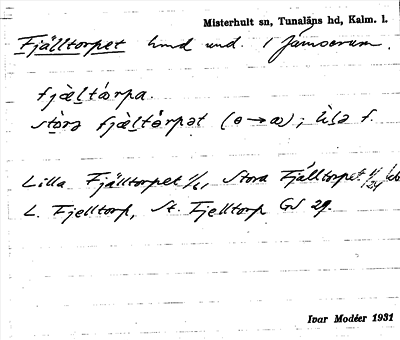 Misterhult sn, Tunaläns hd, Kalm. l.
Fjälltorpet hmd und. 1 Jämserum.
fjæ̀ltɷ́rpa.
stòrə fjæ̀ltɵ́rpət (ɵ→ɷ); lìlə f.
Lilla Fjälltorpet 1/1, Stora Fjälltorpet
L. Fjelltorp, St. Fjelltorp GS 29.
Ivar Modéer 1931